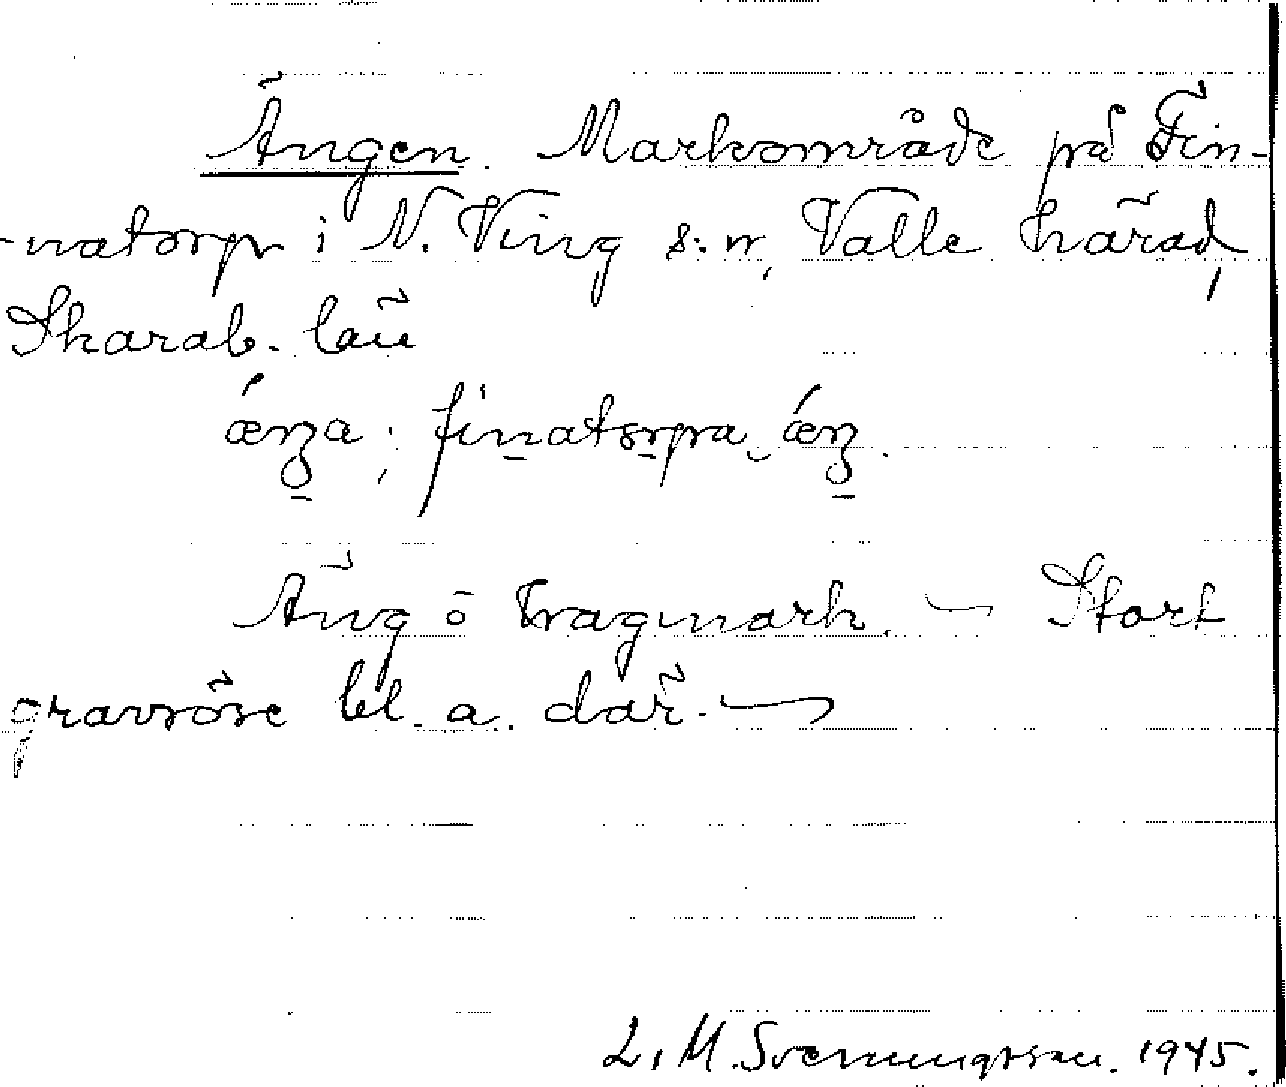 Ängen. Markområde på Fin-
-natorp i N. Ving s:n, Valle härad,
Skarab. län
ænʒa; finatorpa ænʒ.
Äng o hagmark. — Stort
gravröse bl. a. där. —
L. M. Svenungsson. 1945.